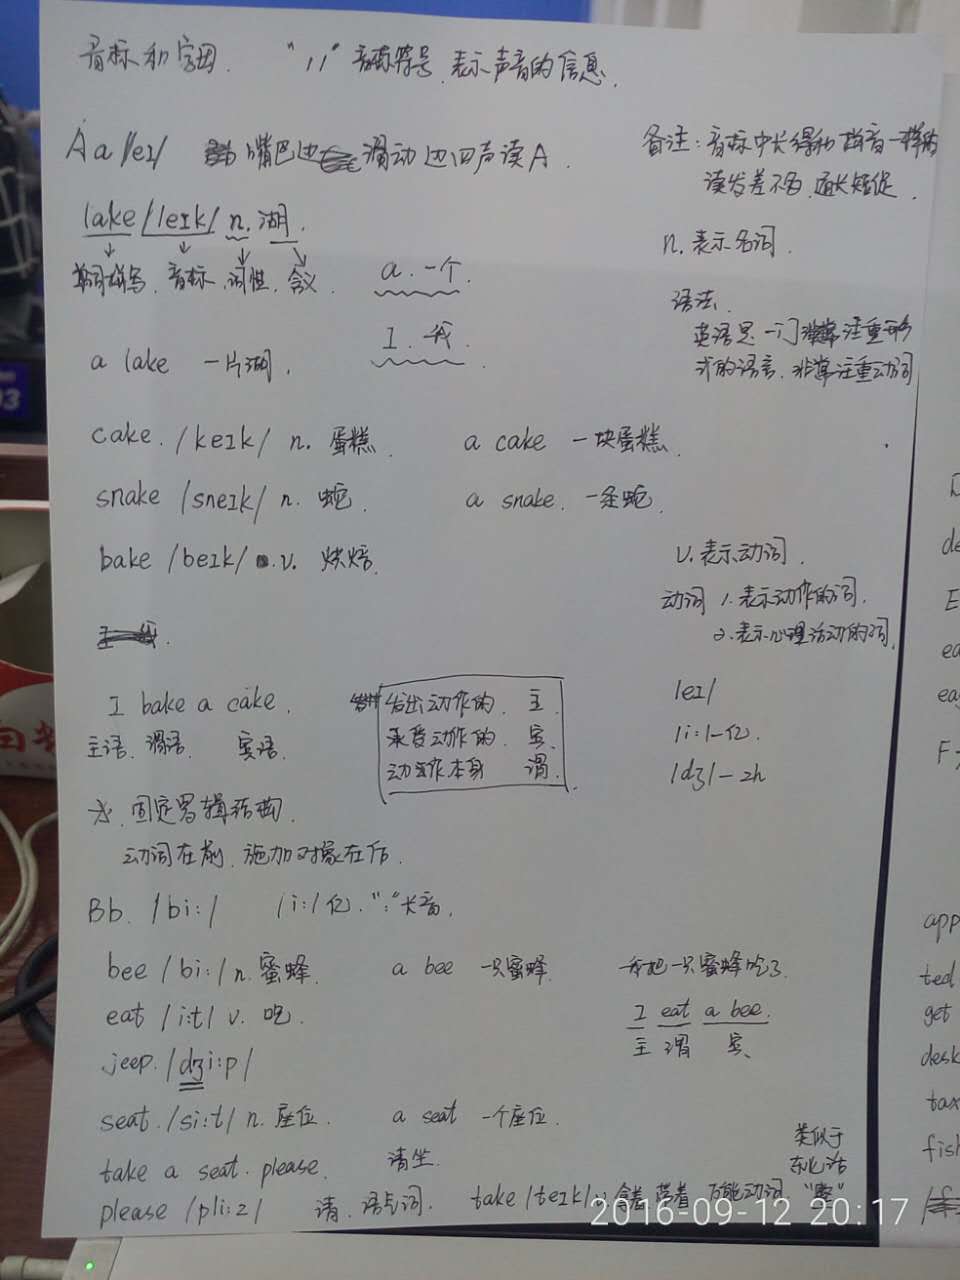 音标和字母. "//" 音标符号, 表示声音的信息.
Aa /eɪ/ 嘴巴边滑动边四声读A.
备注: 音标中长得和拼音一样的
读发差不多, 通长短促.
lake /leɪk/ n. 湖.
n. 表示名词.
单词拼写. 音标. 词性. 含义.
a. 一个.
语法.
I. 我.
英语是一门非常注重形
式的语言, 非常注重动词
a lake 一片湖.
cake. /keɪk/ n. 蛋糕. a cake 一块蛋糕.
snake /sneɪk/ n. 蛇. a snake. 一条蛇.
bake /beɪk/ v. 烘焙.
v. 表示动词.
动词 1. 表示动作的词.
2. 表示心理活动的词.
I bake a cake.
主语. 谓语. 宾语.
发出动作的. 主.
承受动作的. 宾.
动作本身 谓.
/eɪ/
/i:/-亿.
/dʒ/-zh
☆. 固定逻辑结构.
动词在前, 施加对象在后.
Bb. /bi:/ /i:/ 亿. ":" 长音.
bee /bi:/ n. 蜜蜂. a bee 一只蜜蜂. 我把一只蜜蜂吃了.
eat /i:t/ v. 吃.
I eat a bee.
主 谓 宾.
jeep. /dʒi:p/
seat. /si:t/ n. 座位. a seat 一个座位.
take a seat. please. 请坐.
类似于
东北话
"整"
please /pli:z/ 请. 语气词. take /teɪk/ v. 拿着. 带着. 万能动词
2016-09-12 20:17
app
ted
get
desk
tax
fish